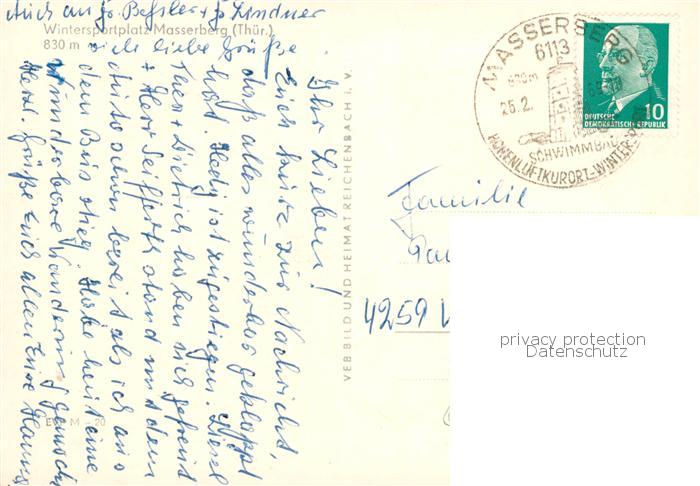 Auch an Fr. Beßler + Fr. Lindner
Wintersportplatz Masserberg (Thür.)
830 m
viele liebe Grüße.
Ihr Lieben!
Euch kurz zur Nachricht,
daß alles wunderbar geklappt
hat. Hedig ist zugestiegen. Liesel
Thien + Dietrich haben sich gefreut
+ Herr Seiffert stand mit dem
Auto schon bereit als ich aus
dem Bus stieg. Habe heut eine
wunderbare Wanderung gemacht
Herzl. Grüße Euch allen Eure Hanna
EVP M –20
VEB BILD UND HEIMAT REICHENBACH i. V.
MASSERBERG
6113
830m
25.2.
SCHWIMMBAD
HÖHENLUFTKURORT-WINTERSPORT
DEUTSCHE
DEMOKRATISCHE REPUBLIK
10
Familie
Pau
4259
privacy protection
Datenschutz